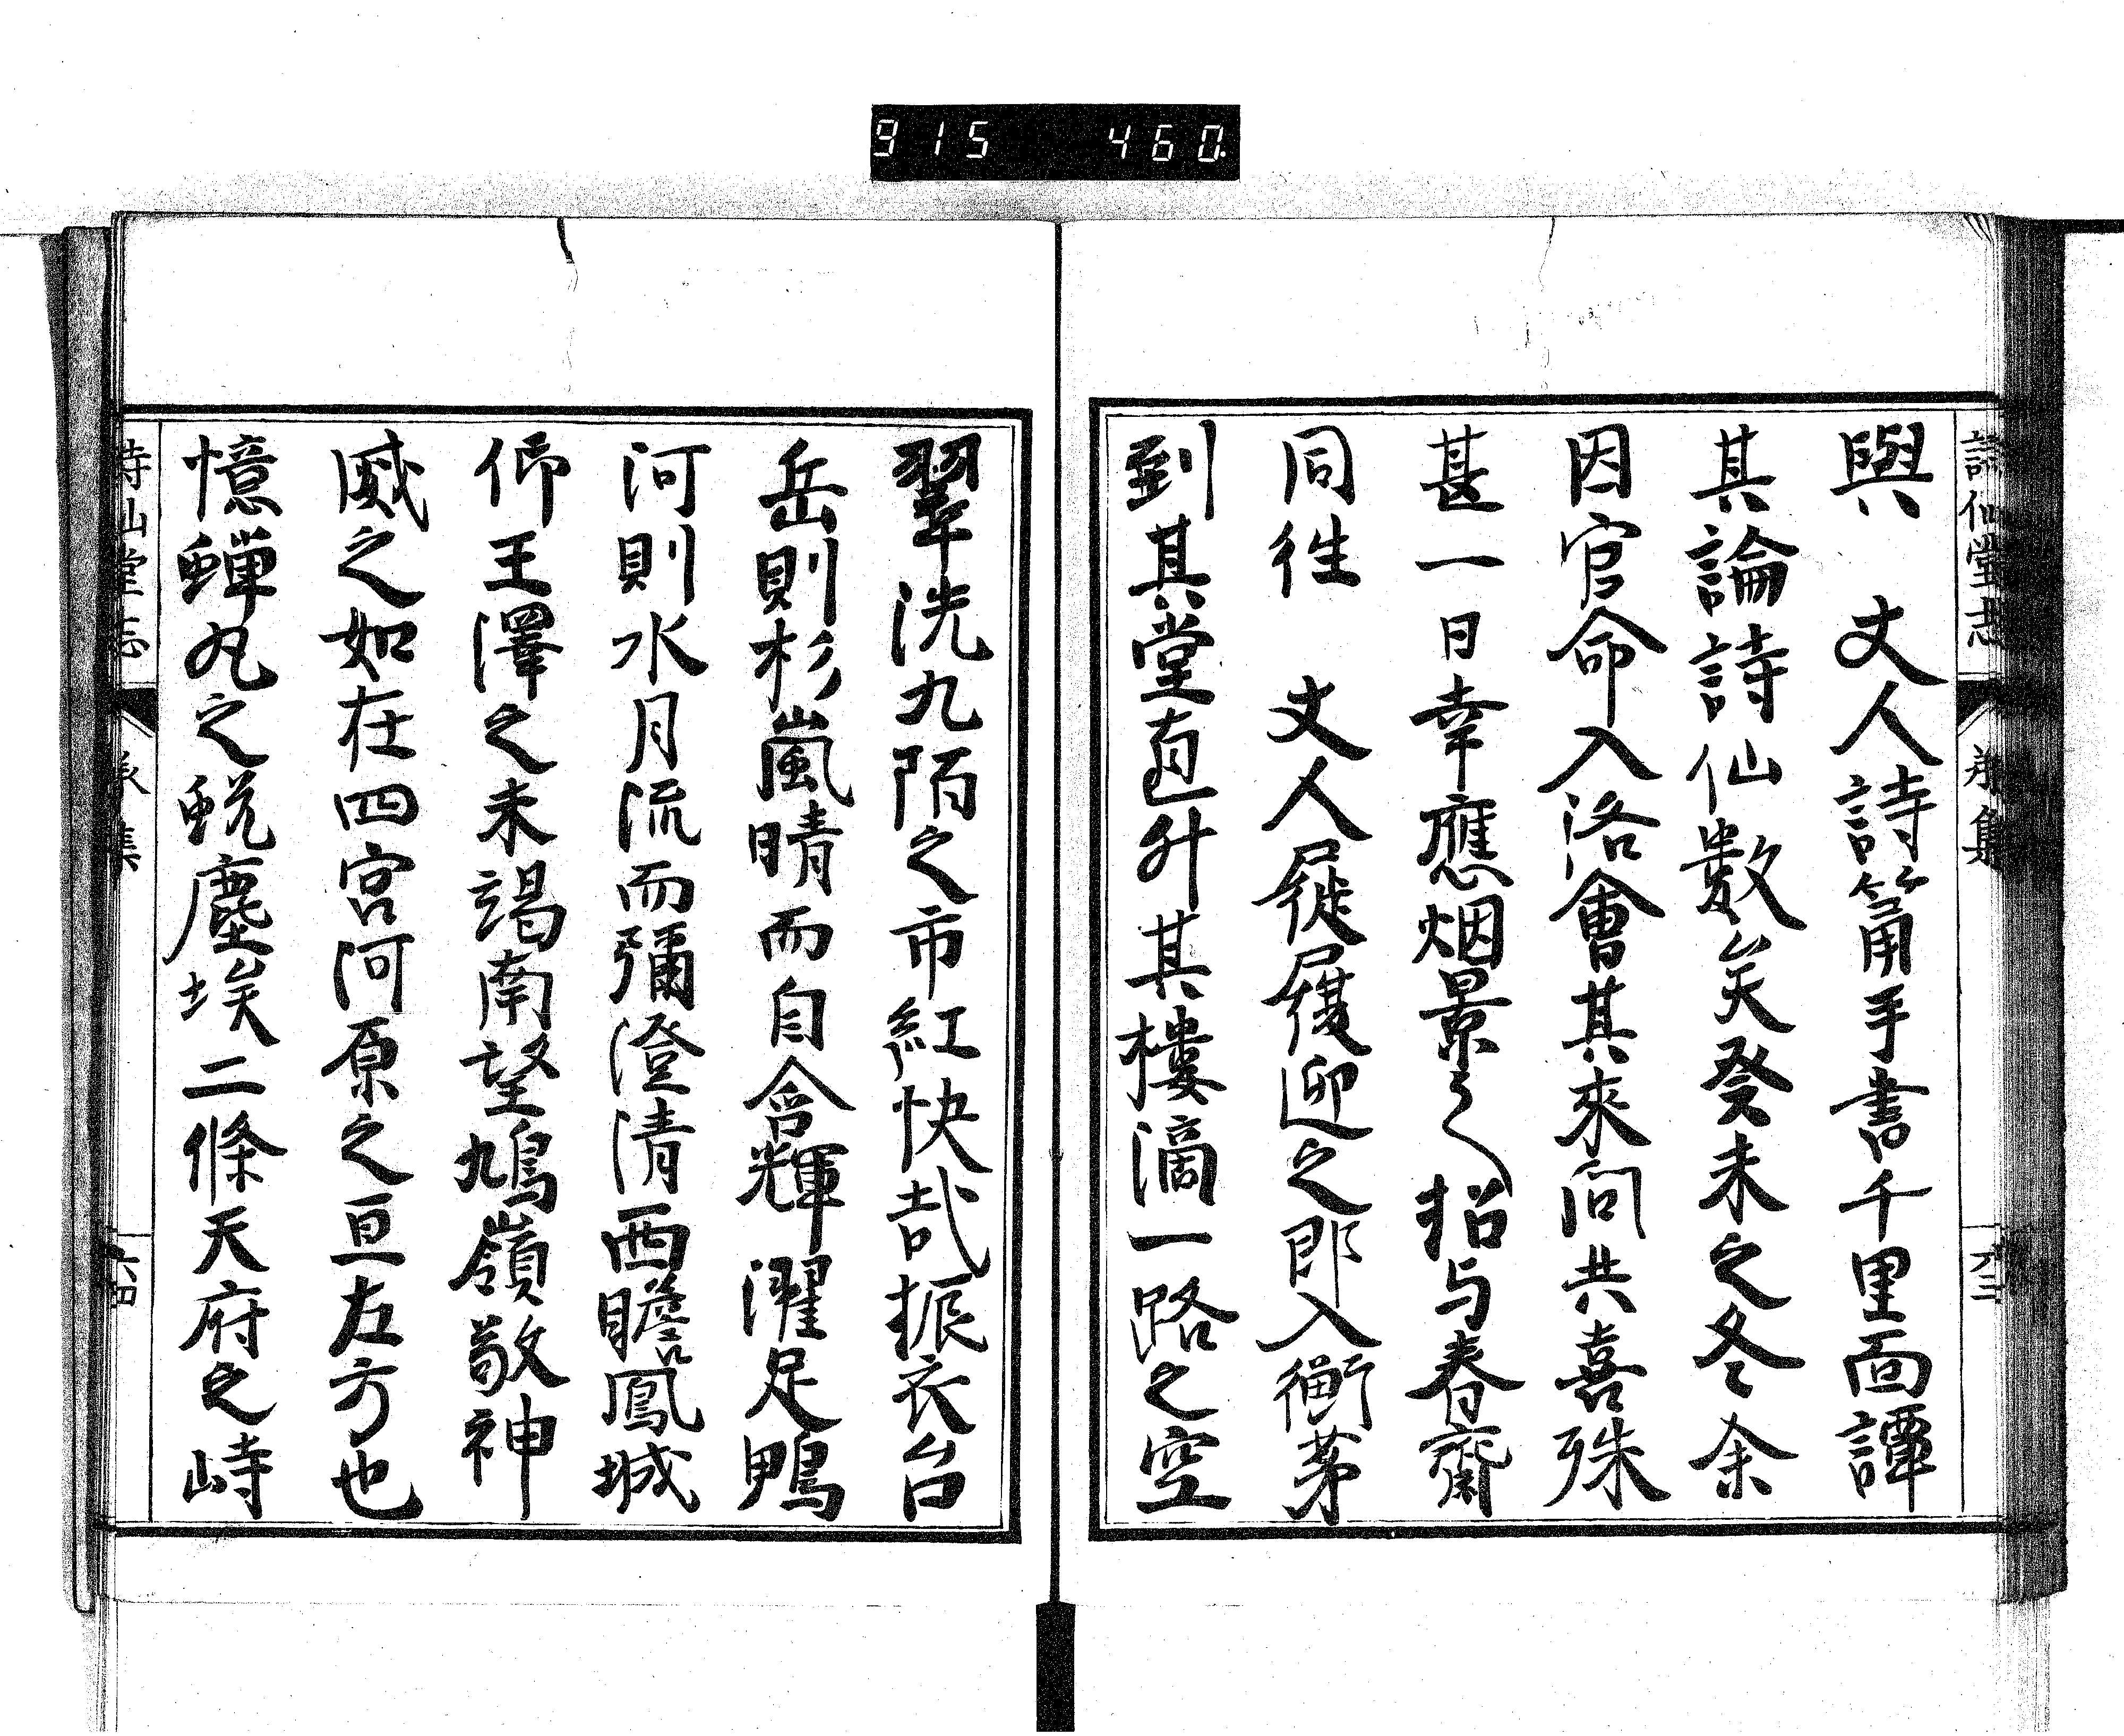 915 460
詩仙堂志 承集 六三
與 丈人詩筩手書千里面譚
其論詩詩仙數矣癸未之冬余
因官命入洛會其來問共喜殊
甚一日幸應烟景之招与春齋
同徃 丈人屣履迎之即入衡茅
到其堂直升其樓滴一路之空
翠洗九陌之市紅快哉振衣台
岳則杉嵐晴而自含輝濯足鴨
河則水月流而彌澄清西瞻鳳城
仰王澤之未竭南望鳩嶺敬神
威之如在四宮河原之亘左方也
憶蟬丸之蛻塵埃二條天府之峙
詩仙堂志 承集 六四